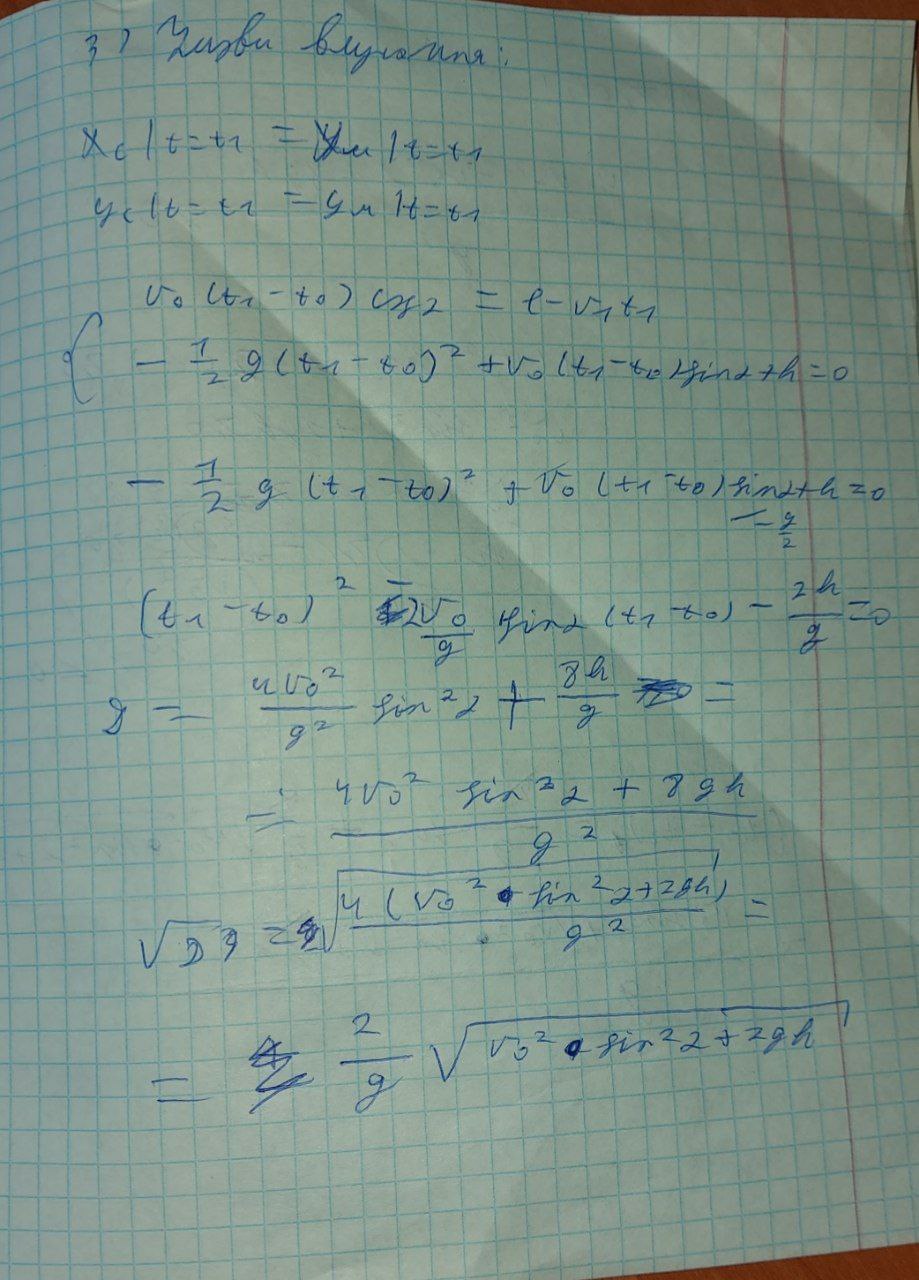 3) Умови влучання:
x_c | t=t1 = x_м | t=t1
y_c | t=t1 = y_м | t=t1
v₀ (t₁ - t₀) cos α = l - v₁t₁
{ - 1/2 g (t₁ - t₀)² + v₀ (t₁ - t₀) sin α + h = 0
- 1/2 g (t₁ - t₀)² + v₀ (t₁ - t₀) sin α + h = 0
- g/2
(t₁ - t₀)² - 2v₀/g sin α (t₁ - t₀) - 2h/g = 0
D = 4v₀²/g² sin² α + 8h/g =
= (4v₀² sin² α + 8gh)/g²
√D = √(4 (v₀² · sin² α + 2gh)/g²) =
= 2/g √(v₀² · sin² α + 2gh)